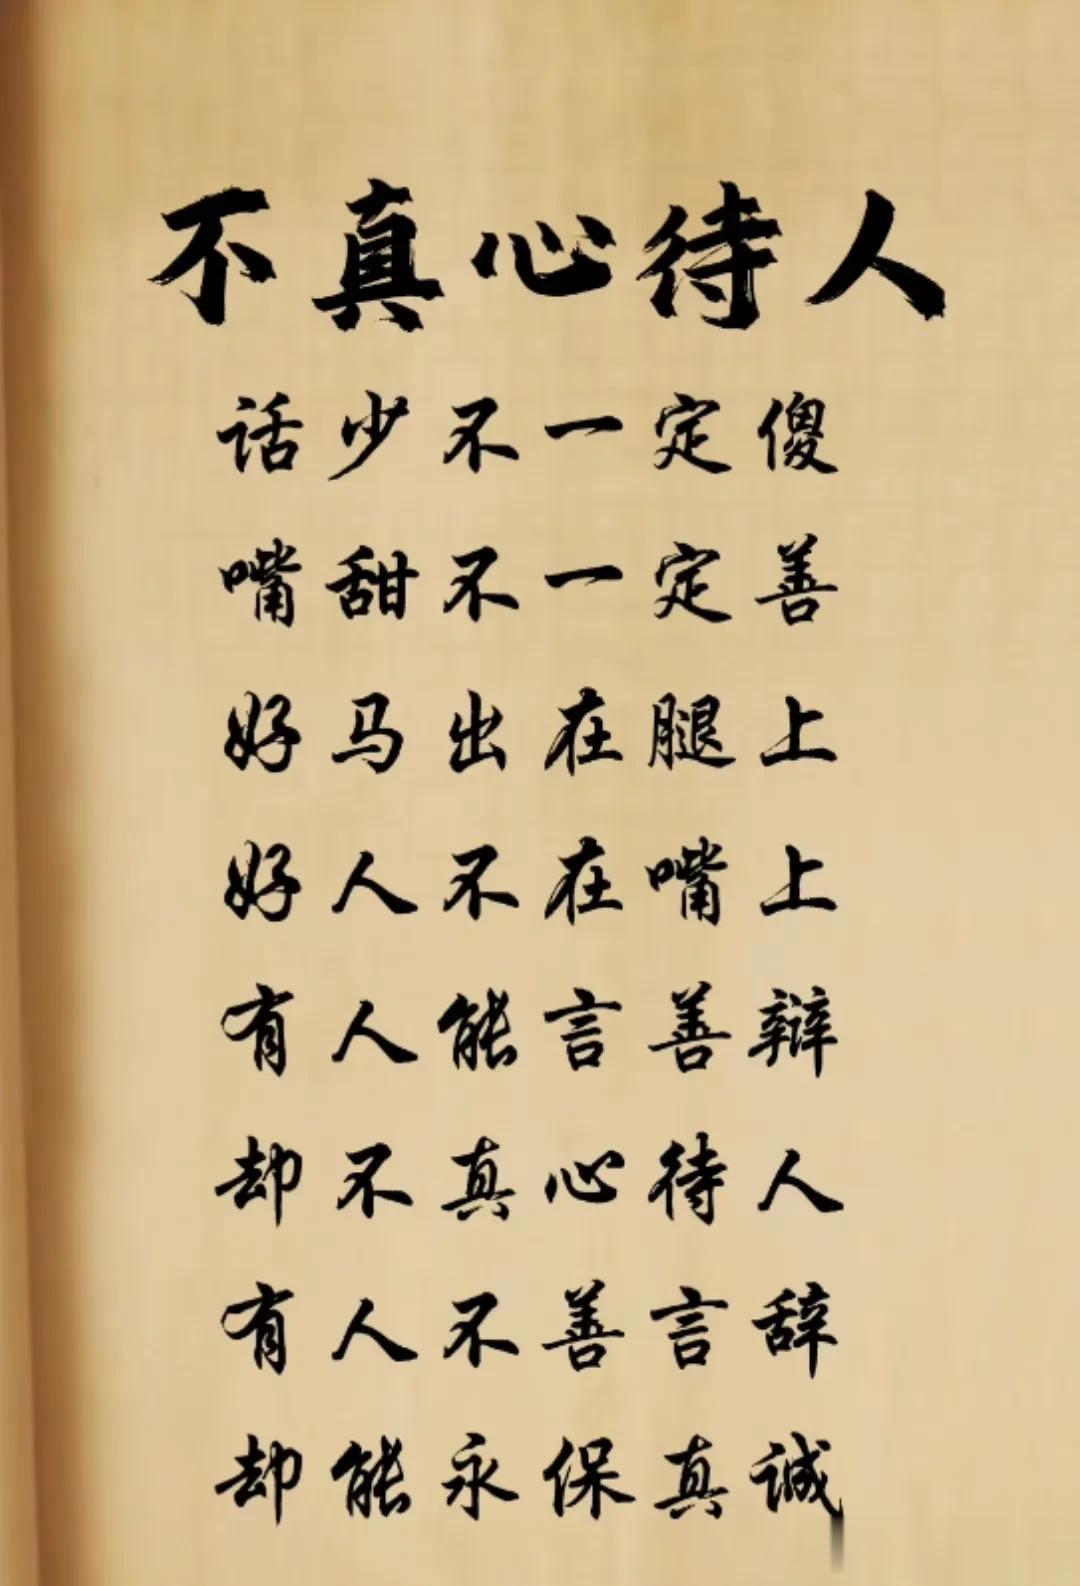 不真心待人
话少不一定傻
嘴甜不一定善
好马出在腿上
好人不在嘴上
有人能言善辩
却不真心待人
有人不善言辞
却能永保真诚